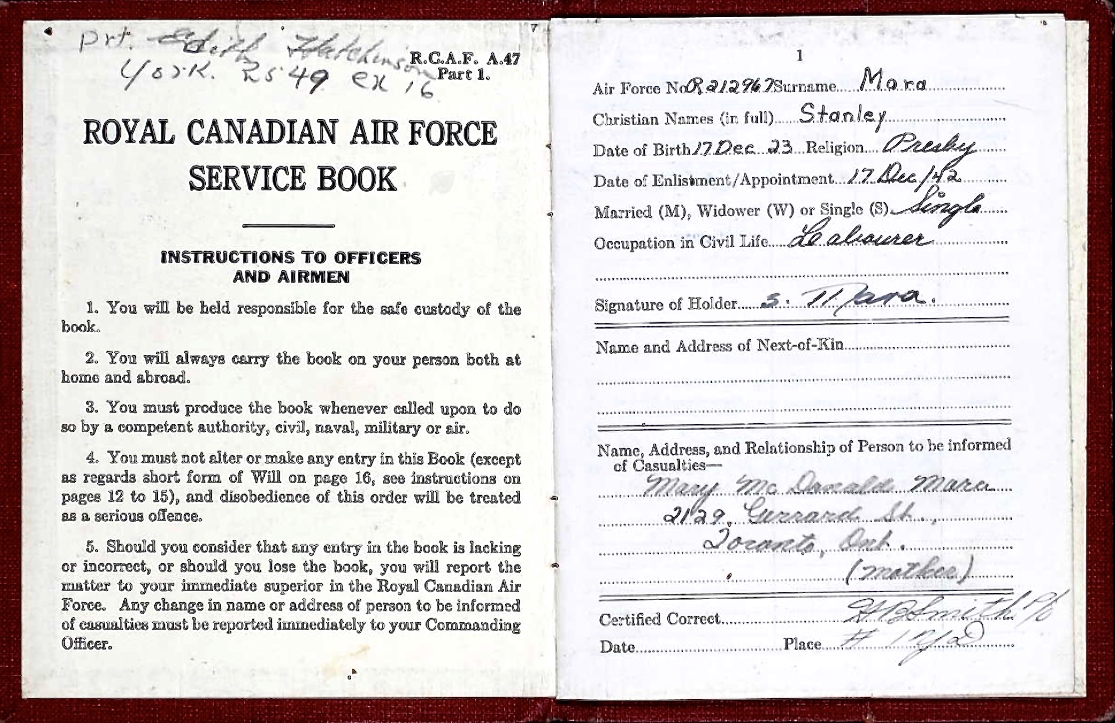 Prt. Edith Hutchinson
York. Rs 49 ex 16
R.C.A.F. A.47
Part 1.
ROYAL CANADIAN AIR FORCE
SERVICE BOOK
INSTRUCTIONS TO OFFICERS
AND AIRMEN
1. You will be held responsible for the safe custody of the
book.
2. You will always carry the book on your person both at
home and abroad.
3. You must produce the book whenever called upon to do
so by a competent authority, civil, naval, military or air.
4. You must not alter or make any entry in this Book (except
as regards short form of Will on page 16, see instructions on
pages 12 to 15), and disobedience of this order will be treated
as a serious offence.
5. Should you consider that any entry in the book is lacking
or incorrect, or should you lose the book, you will report the
matter to your immediate superior in the Royal Canadian Air
Force. Any change in name or address of person to be informed
of casualties must be reported immediately to your Commanding
Officer.
1
Air Force No R212967 Surname Mara
Christian Names (in full) Stanley
Date of Birth 17 Dec 23 Religion Presby
Date of Enlistment/Appointment 17 Dec/42
Married (M), Widower (W) or Single (S) Single
Occupation in Civil Life Labourer
Signature of Holder S. Mara.
Name and Address of Next-of-Kin
Name, Address, and Relationship of Person to be informed
of Casualties—
Mary McDonald Mara
2129, Gerrard St.,
Toronto, Ont.
(mother)
Certified Correct G B Smith P/O
Date Place # 1